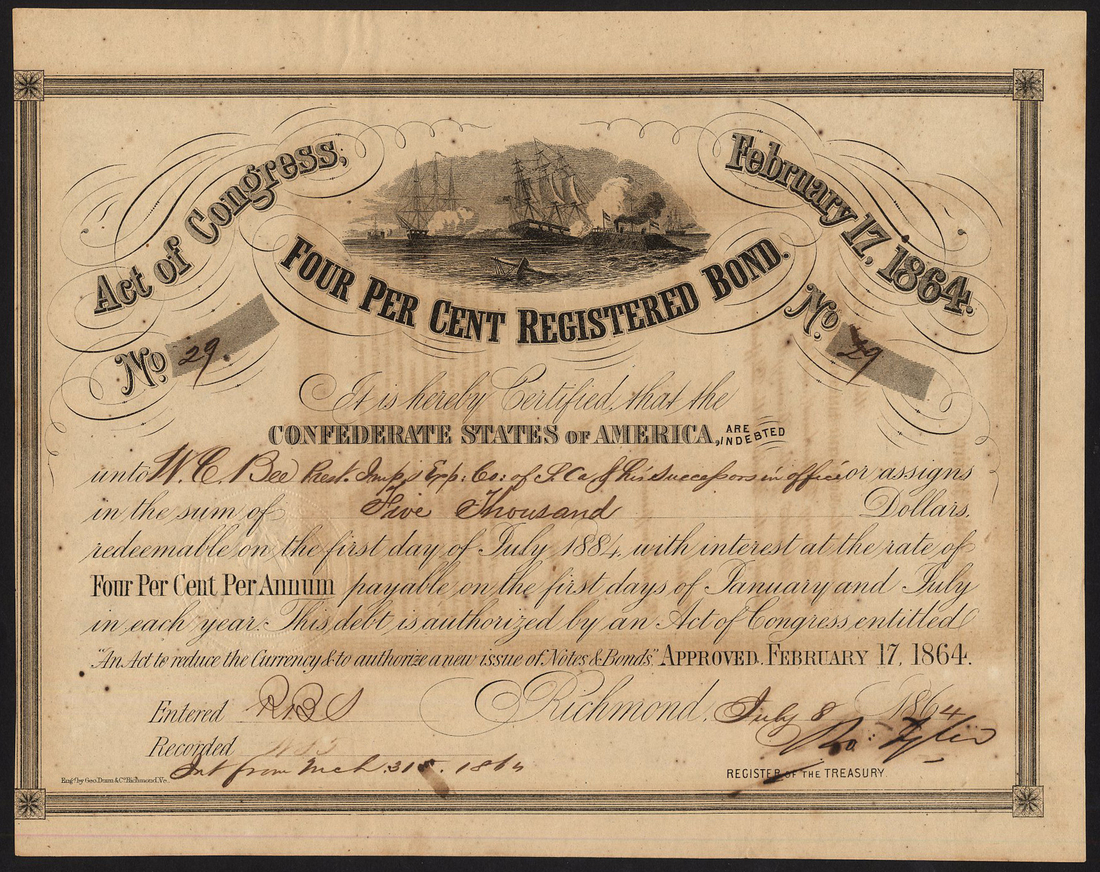 Act of Congress, February 17, 1864.
FOUR PER CENT REGISTERED BOND.
No. 29. No. 29
It is hereby Certified, that the
CONFEDERATE STATES OF AMERICA, ARE INDEBTED
unto W. C. Bee Prest. Imp. & Exp: Co: of S. Ca. & his successors in office or assigns
in the sum of Five Thousand Dollars,
redeemable on the first day of July 1884, with interest at the rate of
Four Per Cent Per Annum payable on the first days of January and July
in each year. This debt is authorized by an Act of Congress entitled
"An Act to reduce the Currency & to authorize a new issue of Notes & Bonds." APPROVED, FEBRUARY 17, 1864.
Entered R.B.S Richmond, July 8 1864
Recorded
Ro: Tyler
Int from Mch 31st. 1864
REGISTER OF THE TREASURY
Eng'd by Geo. Dunn & Co. Richmond, Va.